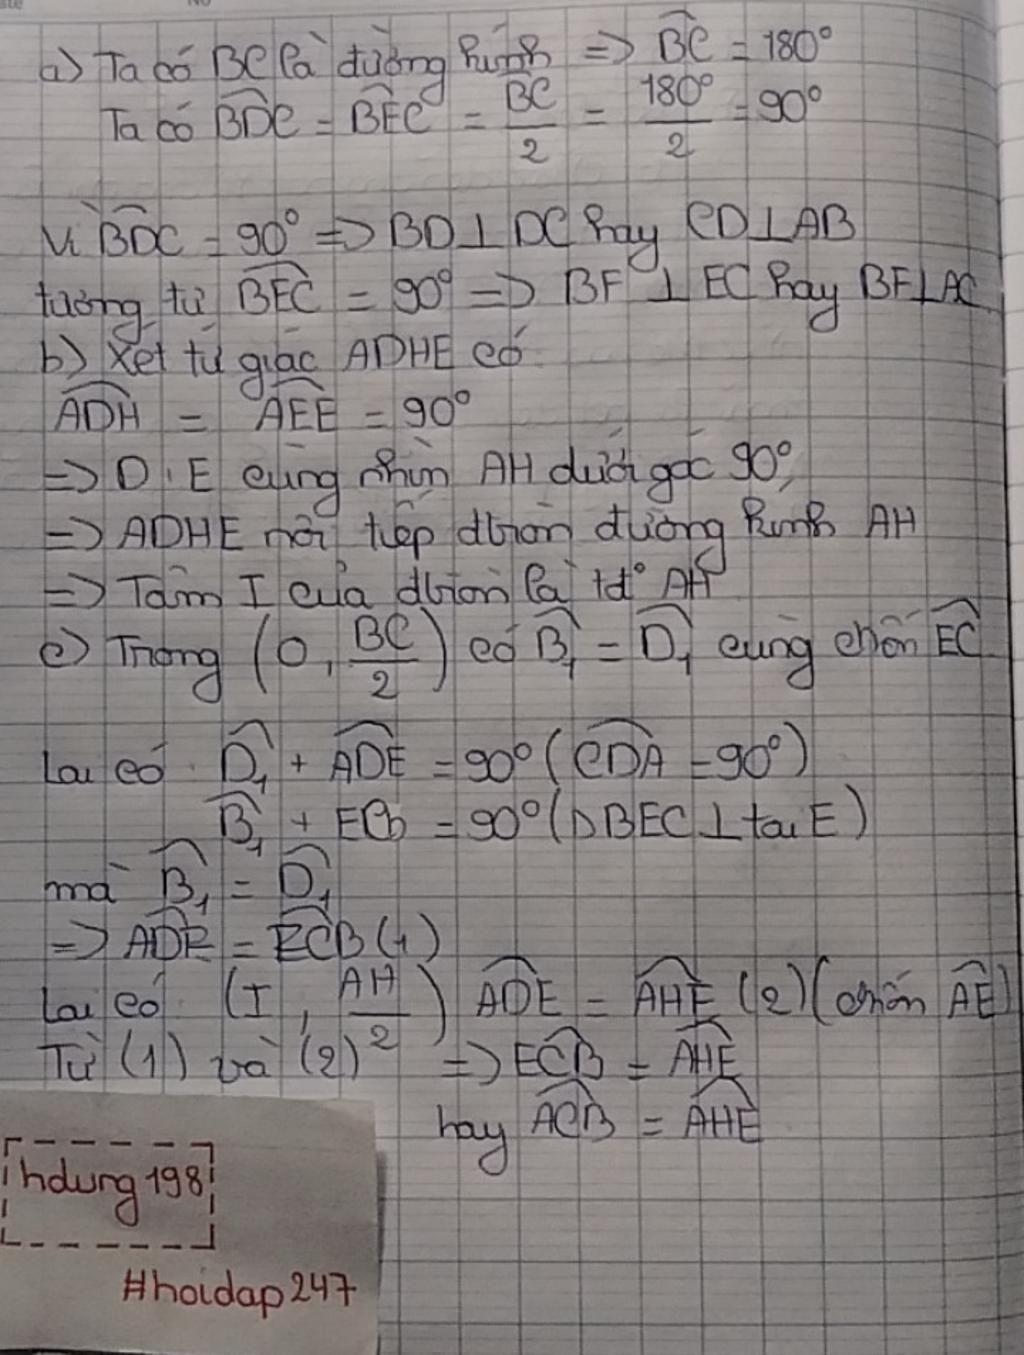 a) Ta có BC là đường kính => BC = 180°
Ta có BDC = BEC = BC/2 = 180°/2 = 90°
Vì BDC = 90° => BD ⊥ DC hay CD ⊥ AB
tương tự BEC = 90° => BE ⊥ EC hay BE ⊥ AC
b) Xét tứ giác ADHE có
ADH = AEE = 90°
=> D, E cùng nhìn AH dưới góc 90°
=> ADHE nội tiếp đtròn đường kính AH
=> Tâm I của đtròn là tđ° AH
c) Trong (O, BC/2) có B₁ = D₁ cùng chắn EC
Lại có D₁ + ADE = 90° (CDA = 90°)
B₁ + ECb = 90° (Δ BEC ⊥ tại E)
mà B₁ = D₁
=> ADE = ECB (1)
Lại có (I, AH/2) ADE = AHE (2) (chắn AE)
Từ (1) và (2) => ECB = AHE
hay ACB = AHE
hdung198
#hoidap247